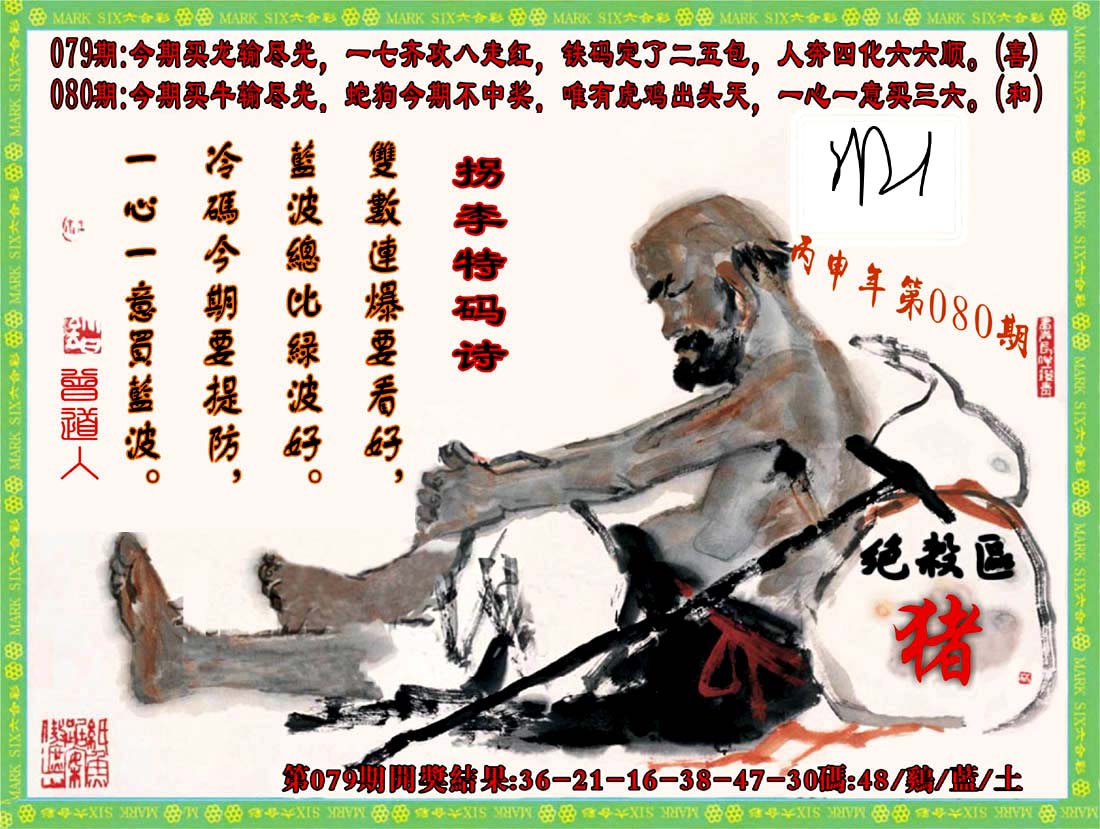 MARK SIX六合彩
079期:今期买龙输尽光，一七齐攻八走红，铁码定了二五包，人夯四化六六顺。(喜)
080期:今期买牛输尽光，蛇狗今期不中奖，唯有虎鸡出头天，一心一意买三六。(和)
拐李特码诗
雙數連爆要看好，
藍波總比緑波好。
冷碼今期要提防，
一心一意買藍波。
曾道人
丙申年第080期
绝殺區
猪
第079期開獎結果:36-21-16-38-47-30碼:48/鷄/藍/土